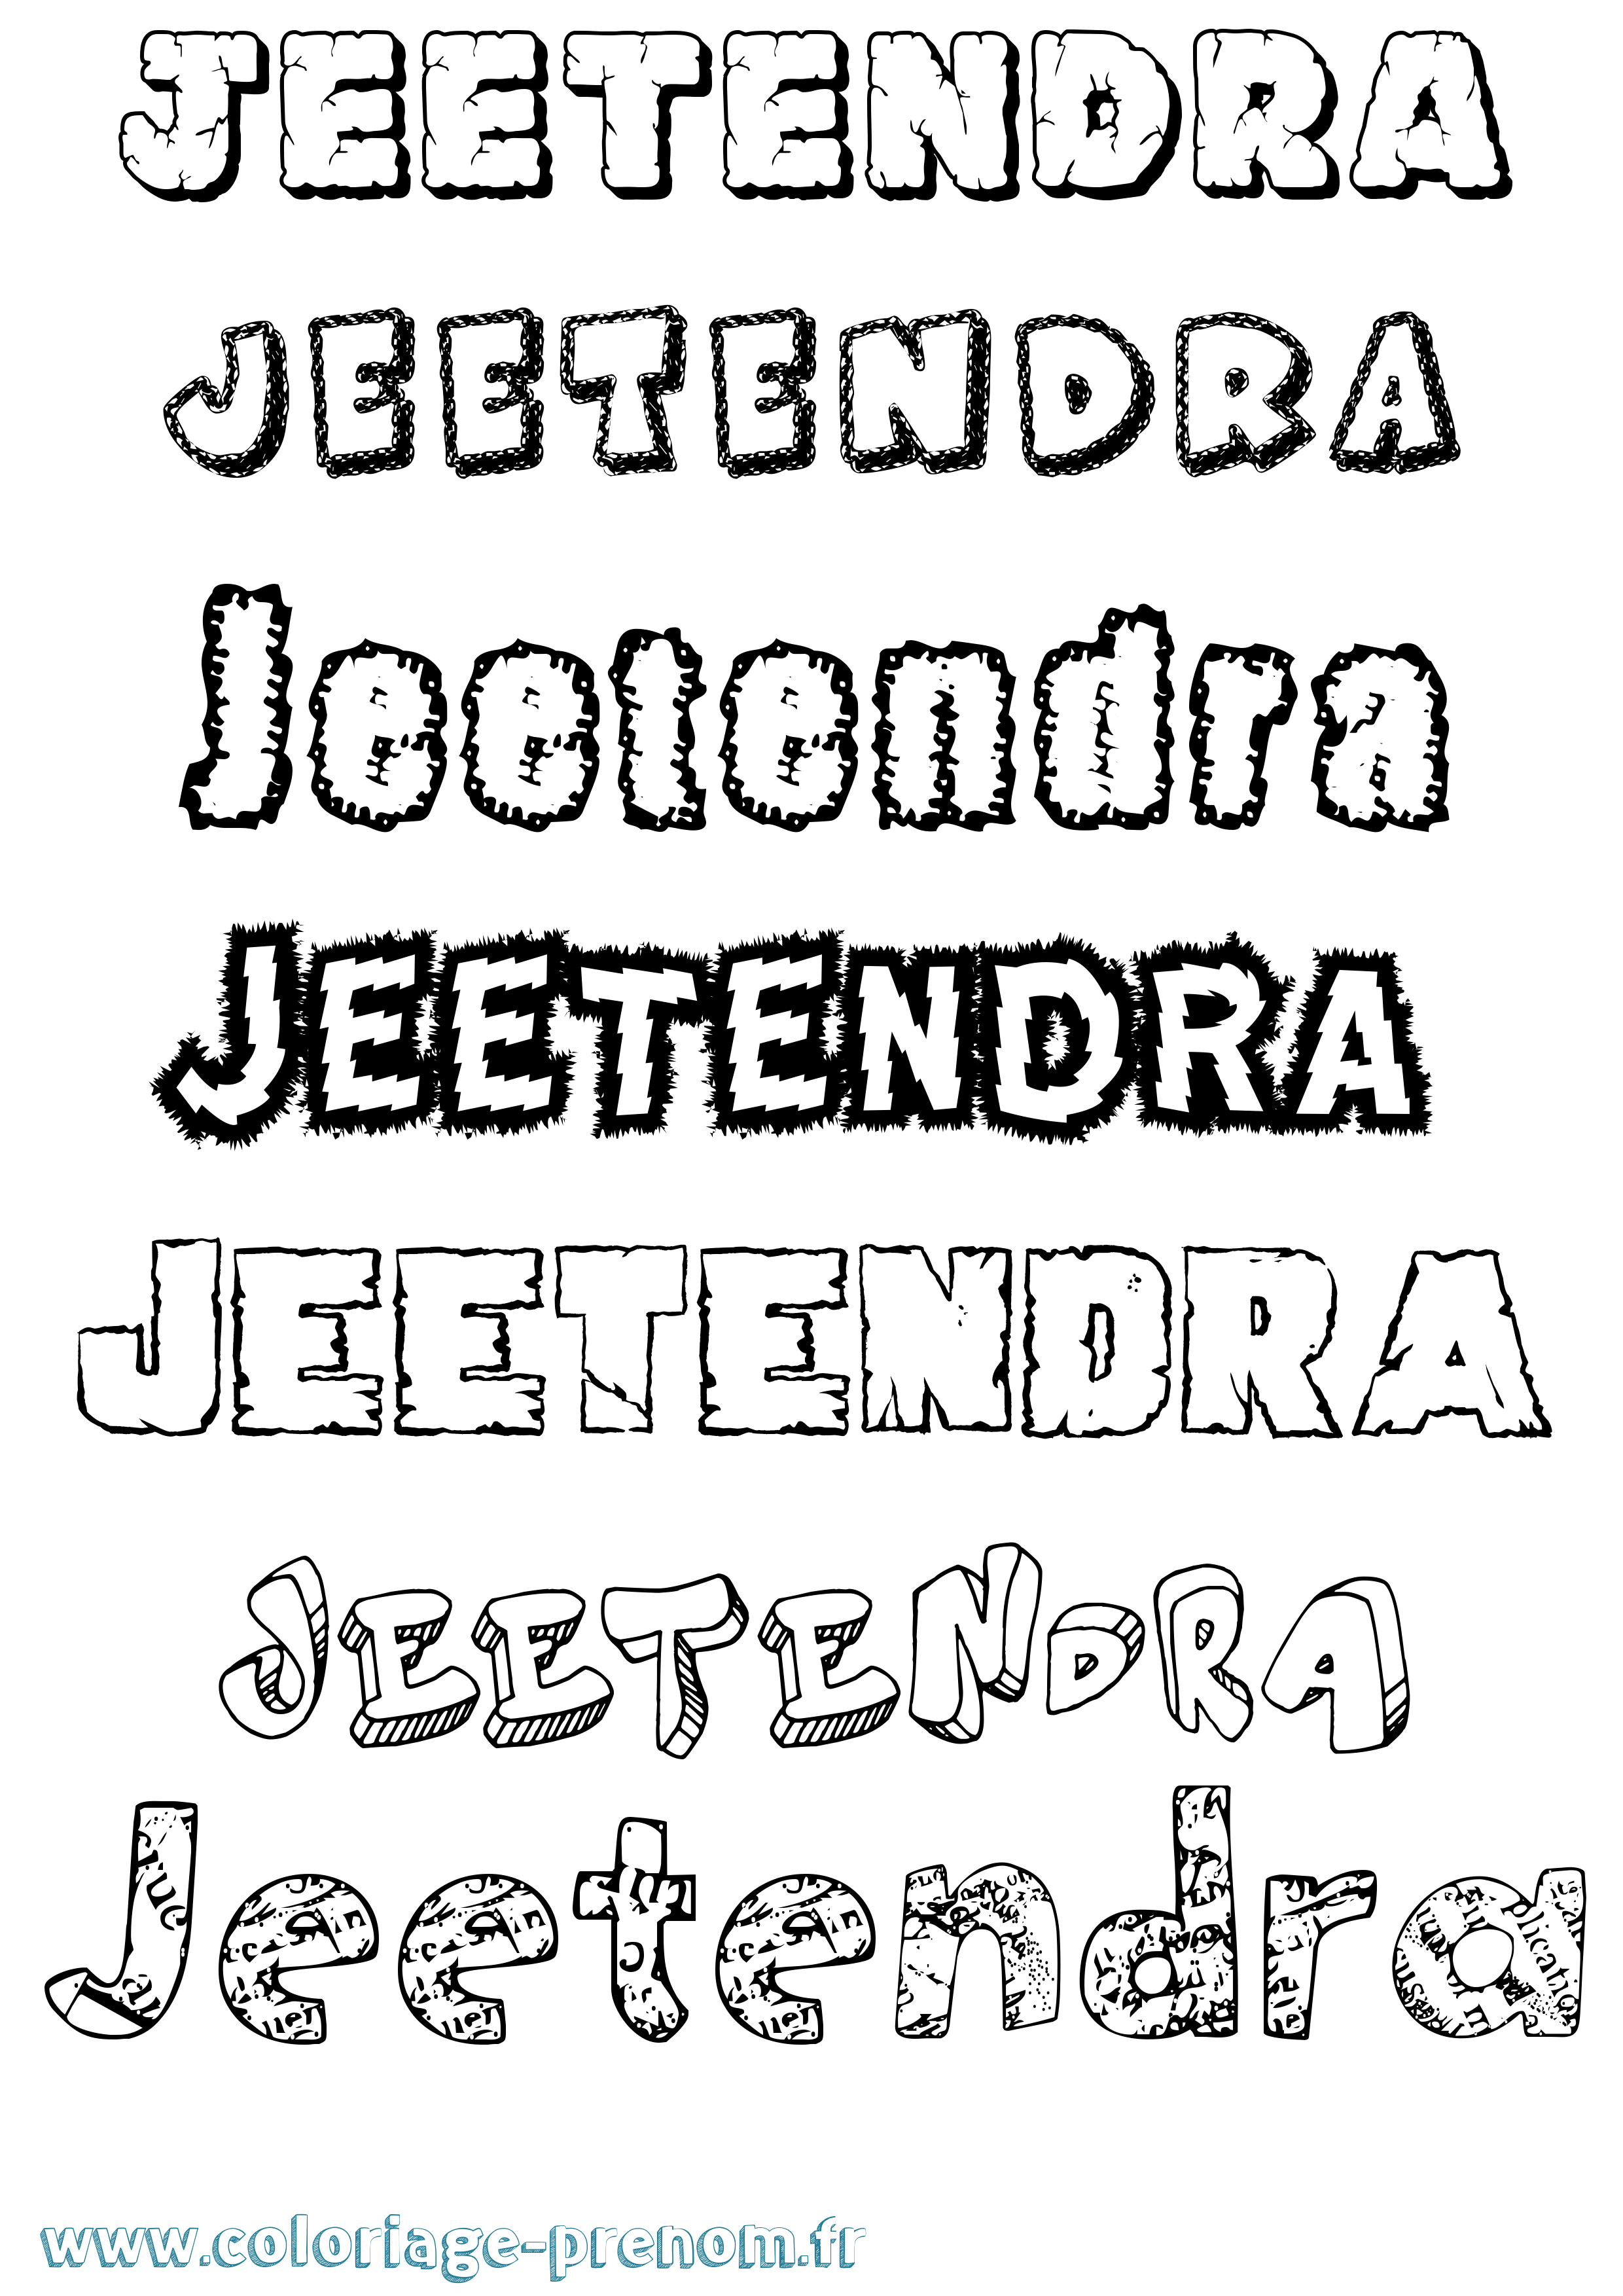 JEETENDRA
JEETENDRA
Jeetendra
JEETENDRA
JEETENDRA
JEETENDRA
Jeetendra
www.coloriage-prenom.fr